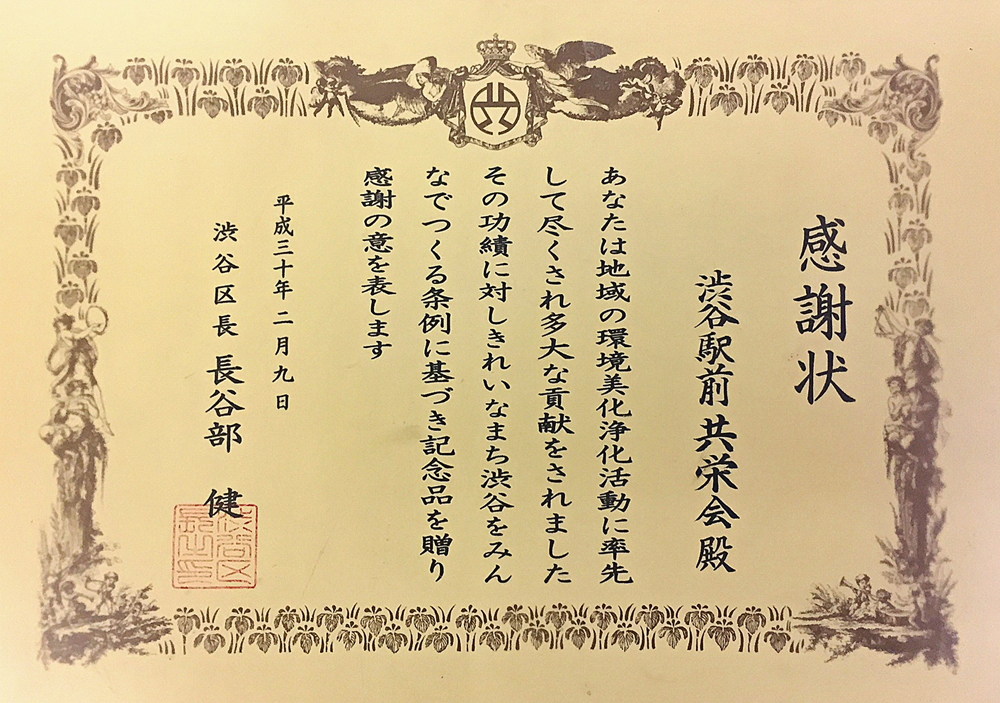 感謝状
渋谷駅前 共栄会 殿
あなたは地域の環境美化浄化活動に率先
して尽くされ多大な貢献をされました
その功績に対しきれいなまち渋谷をみん
なでつくる条例に基づき記念品を贈り
感謝の意を表します
平成三十年 二月九日
渋谷区長 長谷部 健